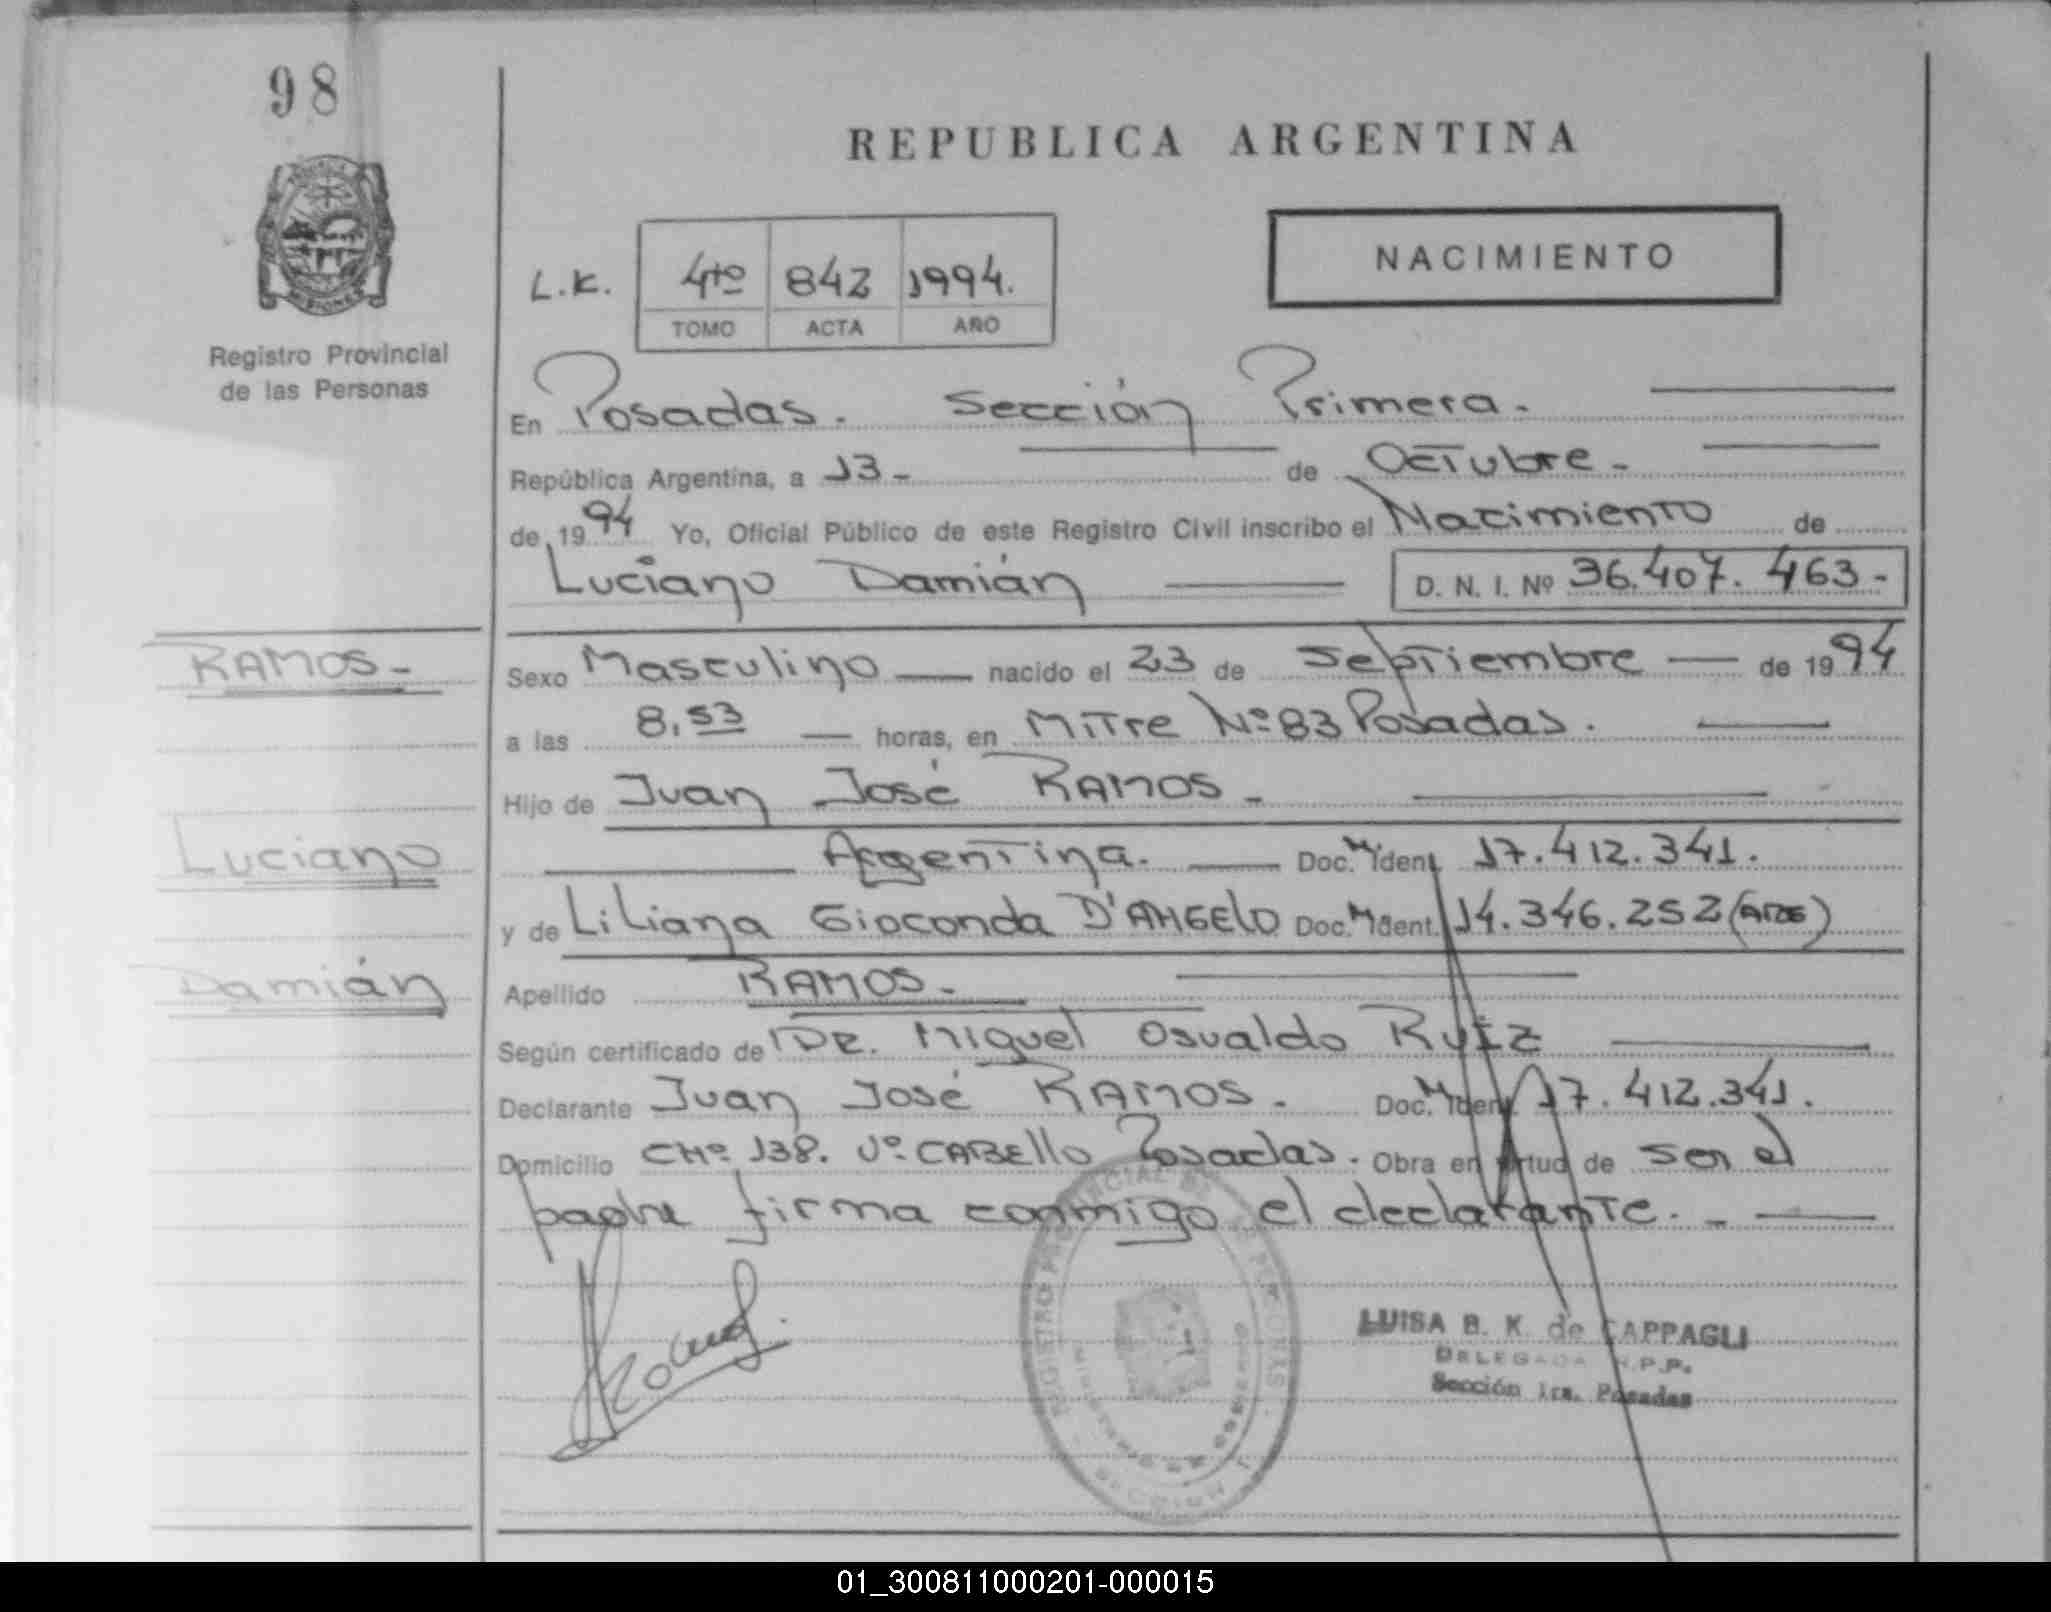 98
REPUBLICA ARGENTINA
NACIMIENTO
L.K. 4to 842 1994.
TOMO ACTA AÑO
Registro Provincial
de las Personas
En Posadas. Sección Primera.
República Argentina, a 13 - de Octubre -
de 1994 Yo, Oficial Público de este Registro Civil inscribo el Nacimiento de
Luciano Damián D. N. I. Nº 36.407.463-
RAMOS-
Sexo Masculino nacido el 23 de Septiembre de 1994
a las 8,53 horas, en Mitre Nº 83 Posadas.
Hijo de Juan José RAMOS -
Luciano
Argentina. Doc. M Ident. 17.412.341.
y de Liliana Gioconda D'ANGELO Doc. M Ident. 14.346.252
Damián
Apellido RAMOS -
Según certificado de DR. Miguel Osvaldo Ruiz
Declarante Juan José RAMOS. Doc. M Ident. 17.412.341.
Domicilio CHº 138. Vº CABELLO Posadas. Obra en virtud de ser el
padre firma conmigo el declarante. -
REGISTRO PROVINCIAL DE LAS PERSONAS
LUISA B. K. de CAPPAGLI
DELEGADA R.P.P.
Sección 1ra. Posadas
01_300811000201-000015